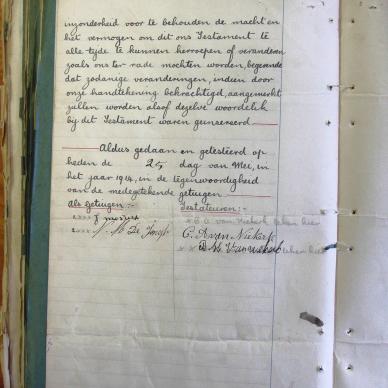 inzonderheid voor te behouden de macht en
het vermogen om dit ons Testament te
alle tyde te kunnen herroepen of veranderen
zoals ons ter rade mochten worden, begerende
dat zodanige veranderingen, indien door
onze handtekening bekrachtigd, aangemerkt
zullen worden alsof dezelve woordelik
by dit Testament waren geinsereerd.
Aldus gedaan en getesteerd op
heden de 25 dag van Mei, in
het jaar 1914, in de tegenwoordigheid
van de medegetekende getuigen.
Als getuigen:- Testateuren:-
van Niekerk teken hier
N. M. De Jongh C. A. van Niekerk
van Niekerk teken hier